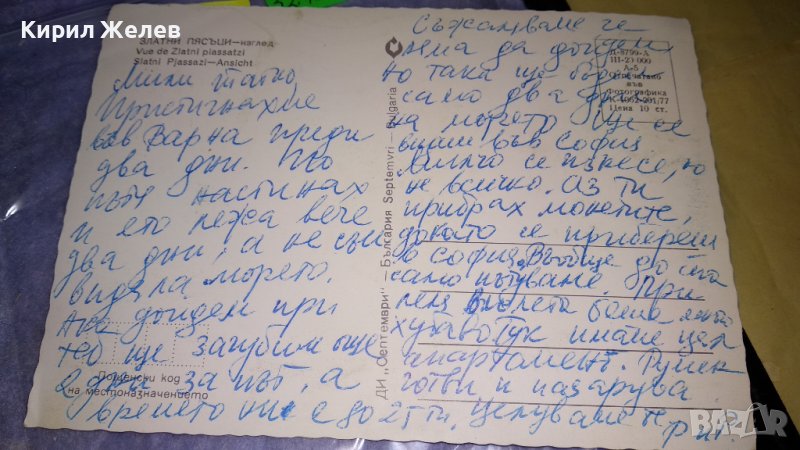 Кирил Желев
ЗЛАТНИ ПЯСЪЦИ—изглед
Vue de Zlatni piassatzi
Slatni Pjassazi—Ansicht
Мили татко,
Пристигнахме
във Варна преди
два дни. По
пътя настинах
и ето лежа вече
два дни, а не съм
видяла морето.
Ако дойдем при
теб ще загубим още
2 дни за път, а
времето ни е до 25ти.
Пощенски код
на местоназначението
ДИ „Септември" — България Septemvri — Bulgaria
Съжаляваме че
няма да дойдем
но така ще бъдем
само два дни
на морето. Ще се
видим във София
Милчо се изнесе, но
не всичко. Аз ти
прибрах монетите,
докато се прибереш
в София. Въобще до тна
само пътуване. При
леля
хубаво Тук имаме цял
апартамент.
готви и пазарува
Целуваме те
Д-8799-А
III-20 000
А-5
Отпечатано
във
Фотографика
К 4052-291/77
Цена 10 ст.
BAZAR